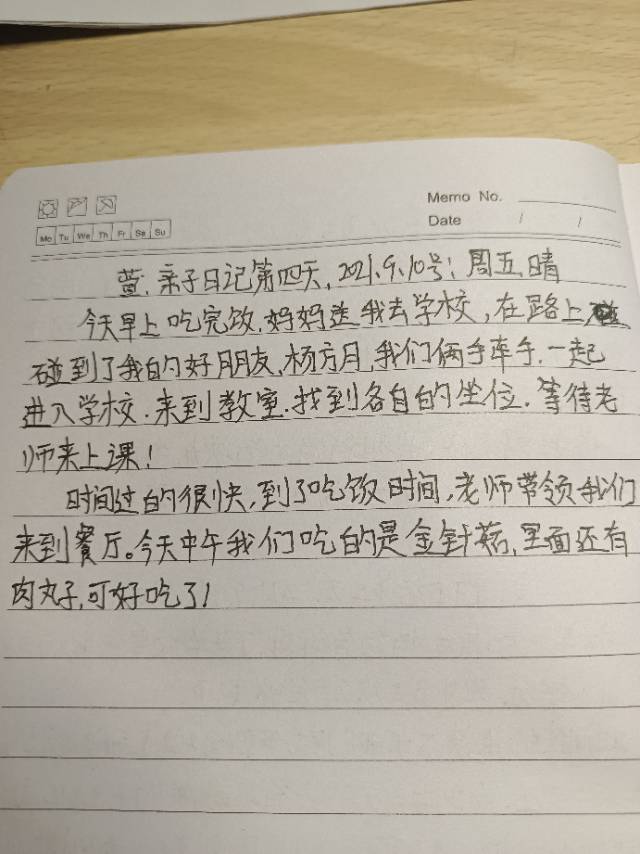 Memo No.
Mo Tu We Th Fr Sa Su
Date / /
萱.亲子日记第四天,2021.9.10号!周五晴
今天早上吃完饭.妈妈送我去学校,在路上
碰到了我的好朋友,杨方月,我们俩手牵手.一起
进入学校.来到教室.找到各自的坐位.等待老
师来上课!
时间过的很快,到了吃饭时间,老师带领我们
来到餐厅。今天中午我们吃的是金针菇,里面还有
肉丸子,可好吃了!